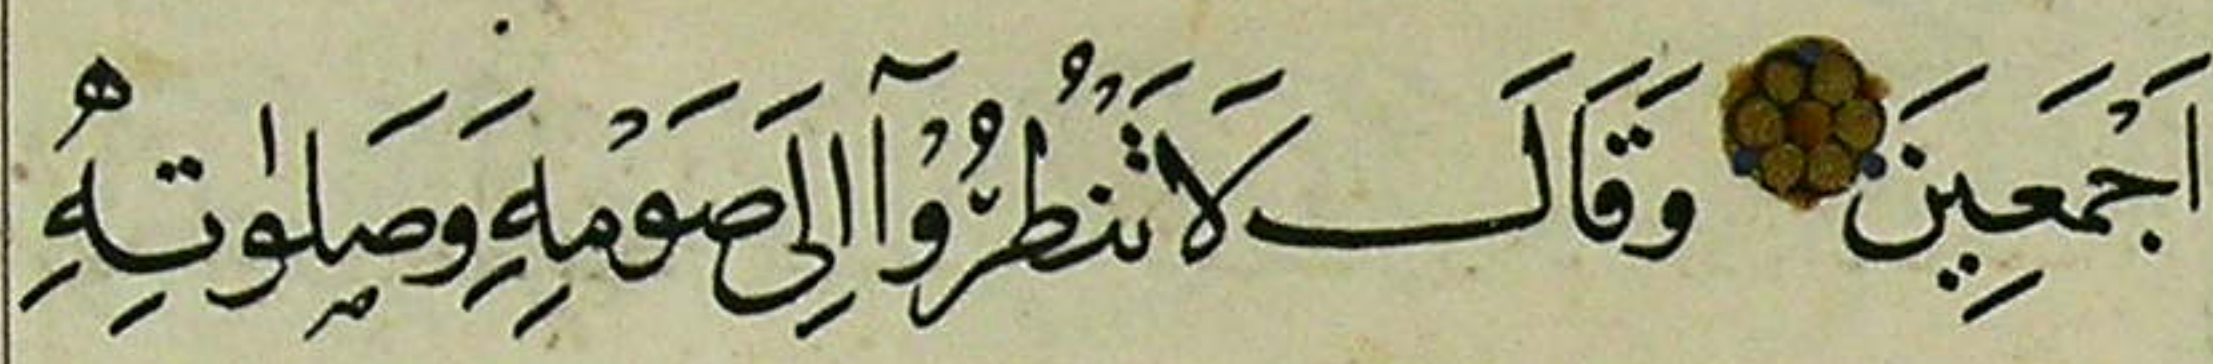 اَجْمَعِينَ وَقَالَ لَا تَنْظُرُوْآ اِلَى صَوْمِهِ وَصَلٰوتِهِ